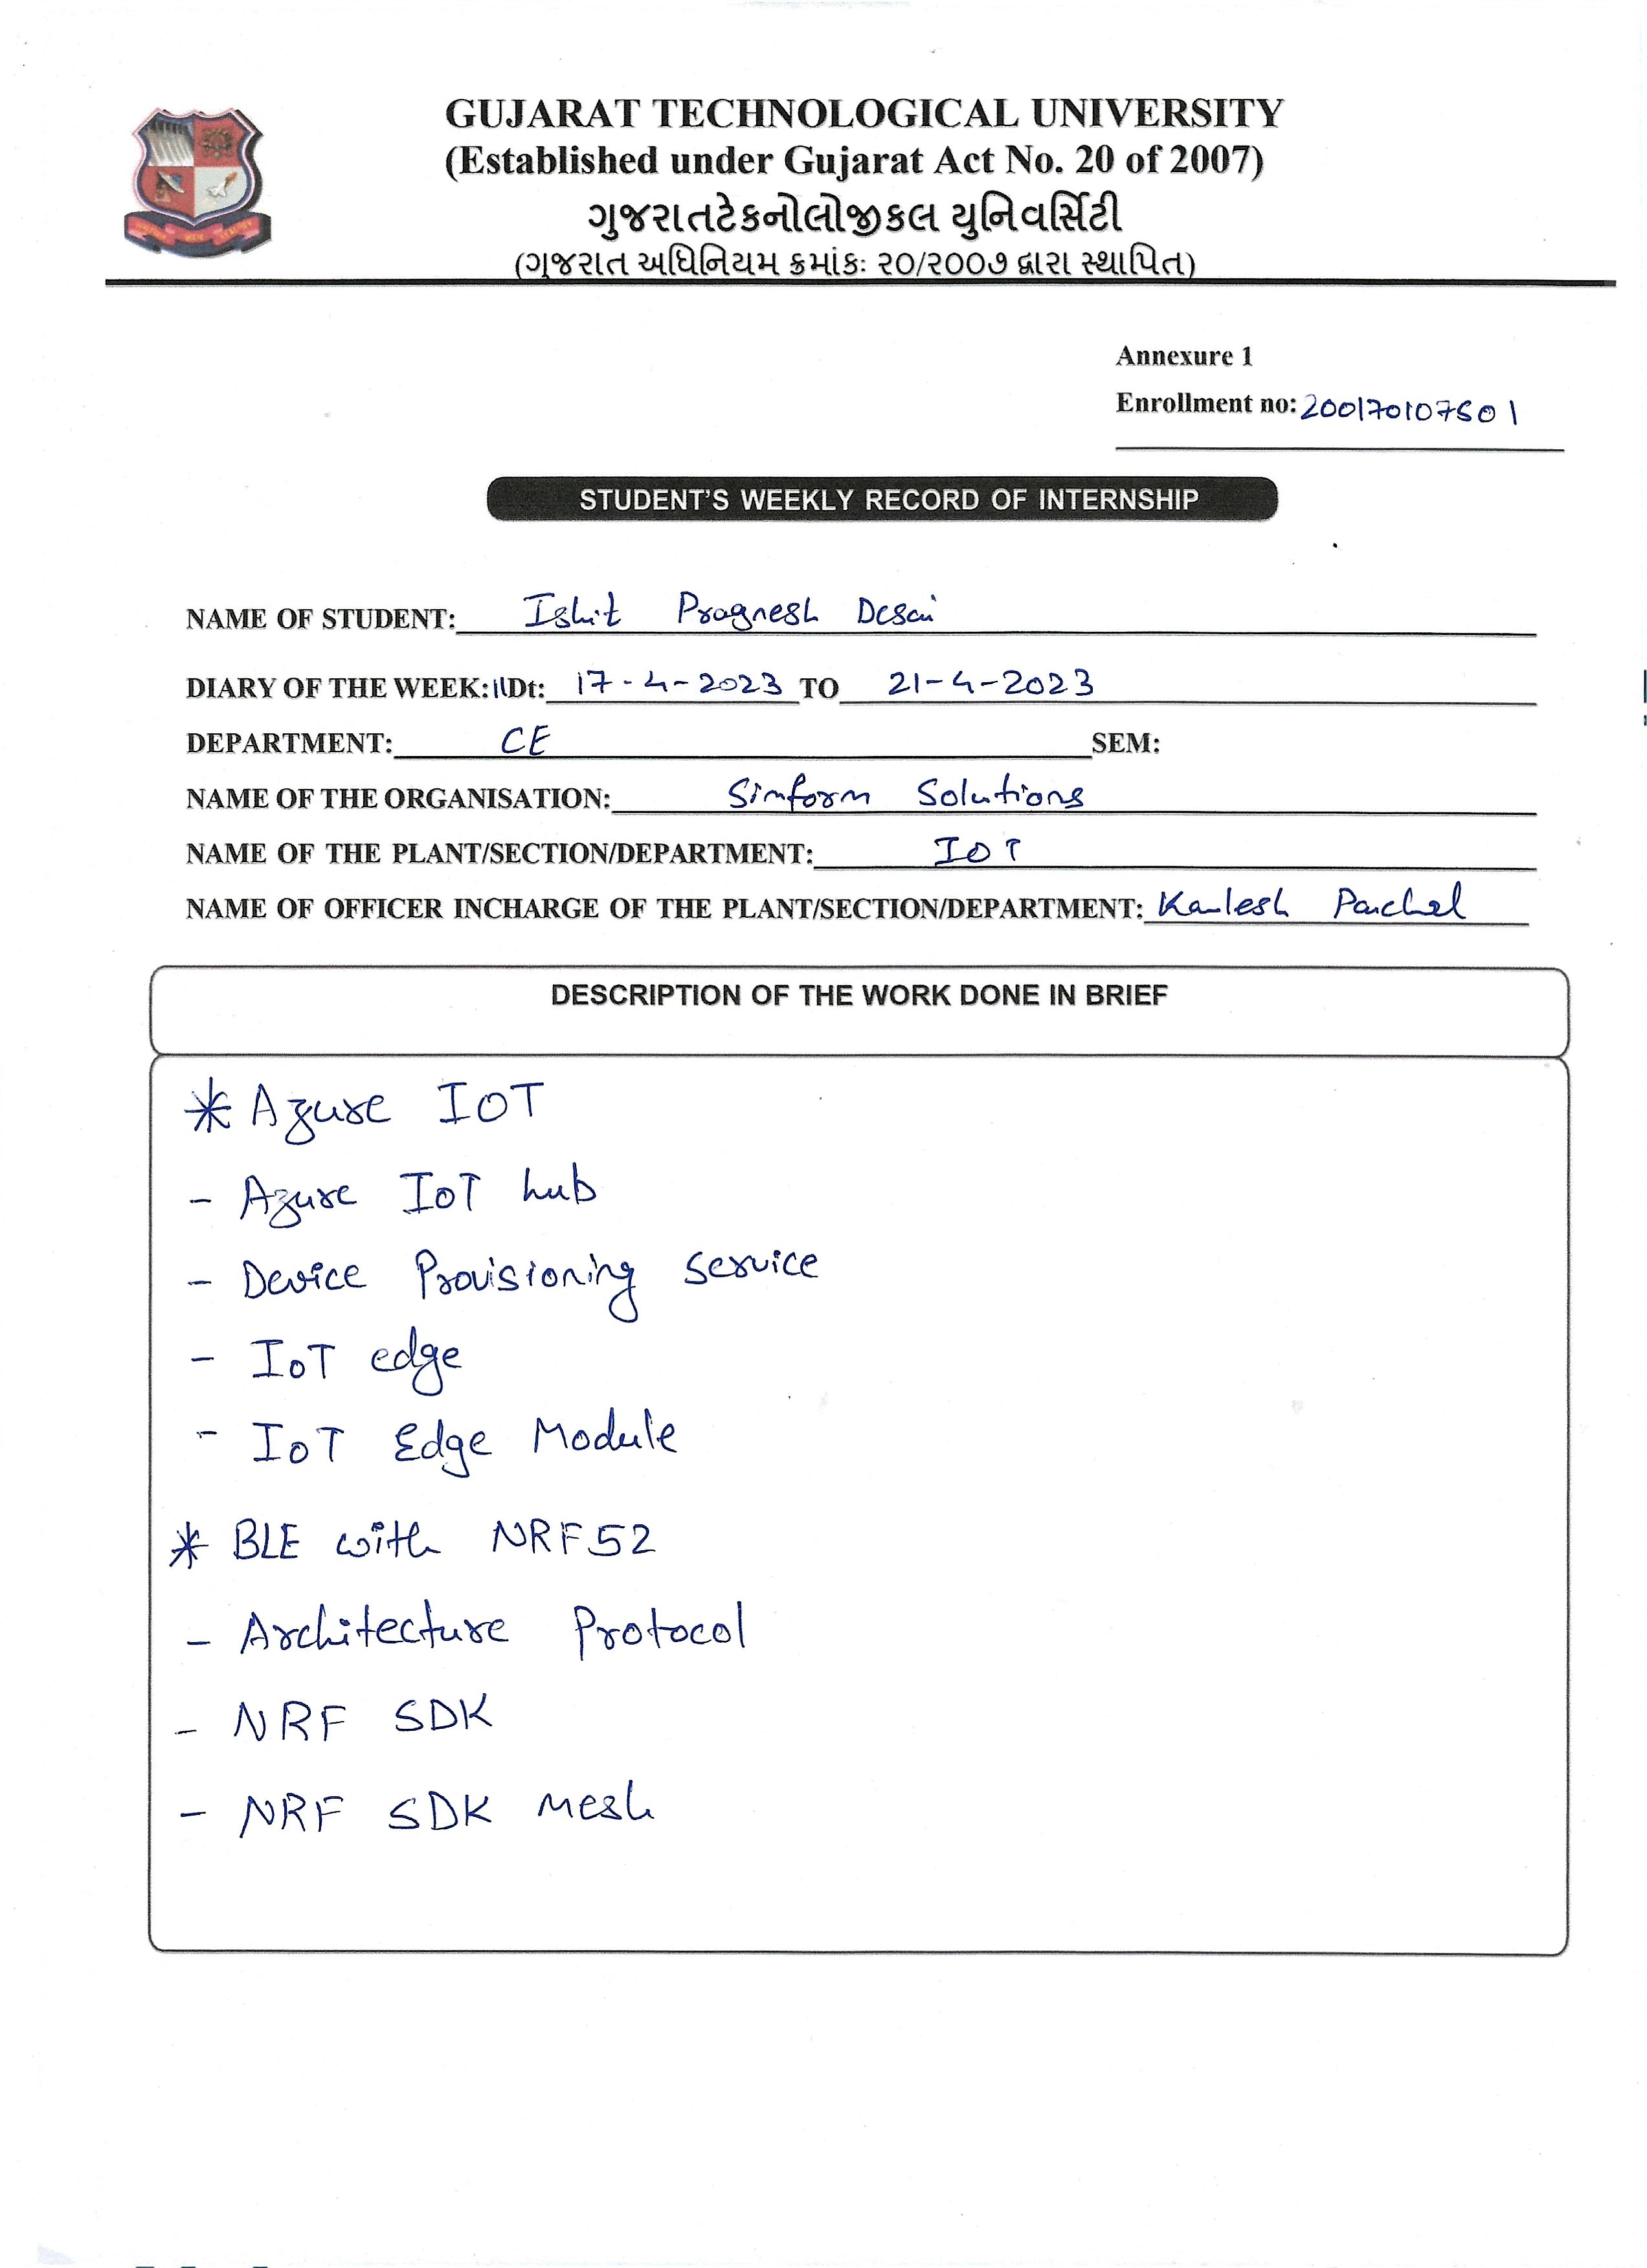 GUJARAT TECHNOLOGICAL UNIVERSITY
(Established under Gujarat Act No. 20 of 2007)
ગુજરાતટેકનોલોજીકલ યુનિવર્સિટી
(ગુજરાત અધિનિયમ ક્રમાંકઃ ૨૦/૨૦૦૭ દ્વારા સ્થાપિત)
Annexure 1
Enrollment no: 200170107501
STUDENT'S WEEKLY RECORD OF INTERNSHIP
NAME OF STUDENT: Ishit Pragnesh Desai
DIARY OF THE WEEK: 11 Dt: 17-4-2023 TO 21-4-2023
DEPARTMENT: CE SEM:
NAME OF THE ORGANISATION: Simform Solutions
NAME OF THE PLANT/SECTION/DEPARTMENT: IOT
NAME OF OFFICER INCHARGE OF THE PLANT/SECTION/DEPARTMENT:
DESCRIPTION OF THE WORK DONE IN BRIEF
* Azure IOT
- Azure IoT hub
- Device Provisioning service
- IoT edge
- IoT Edge Module
* BLE with NRF52
- Architecture Protocol
- NRF SDK
- NRF SDK mesh